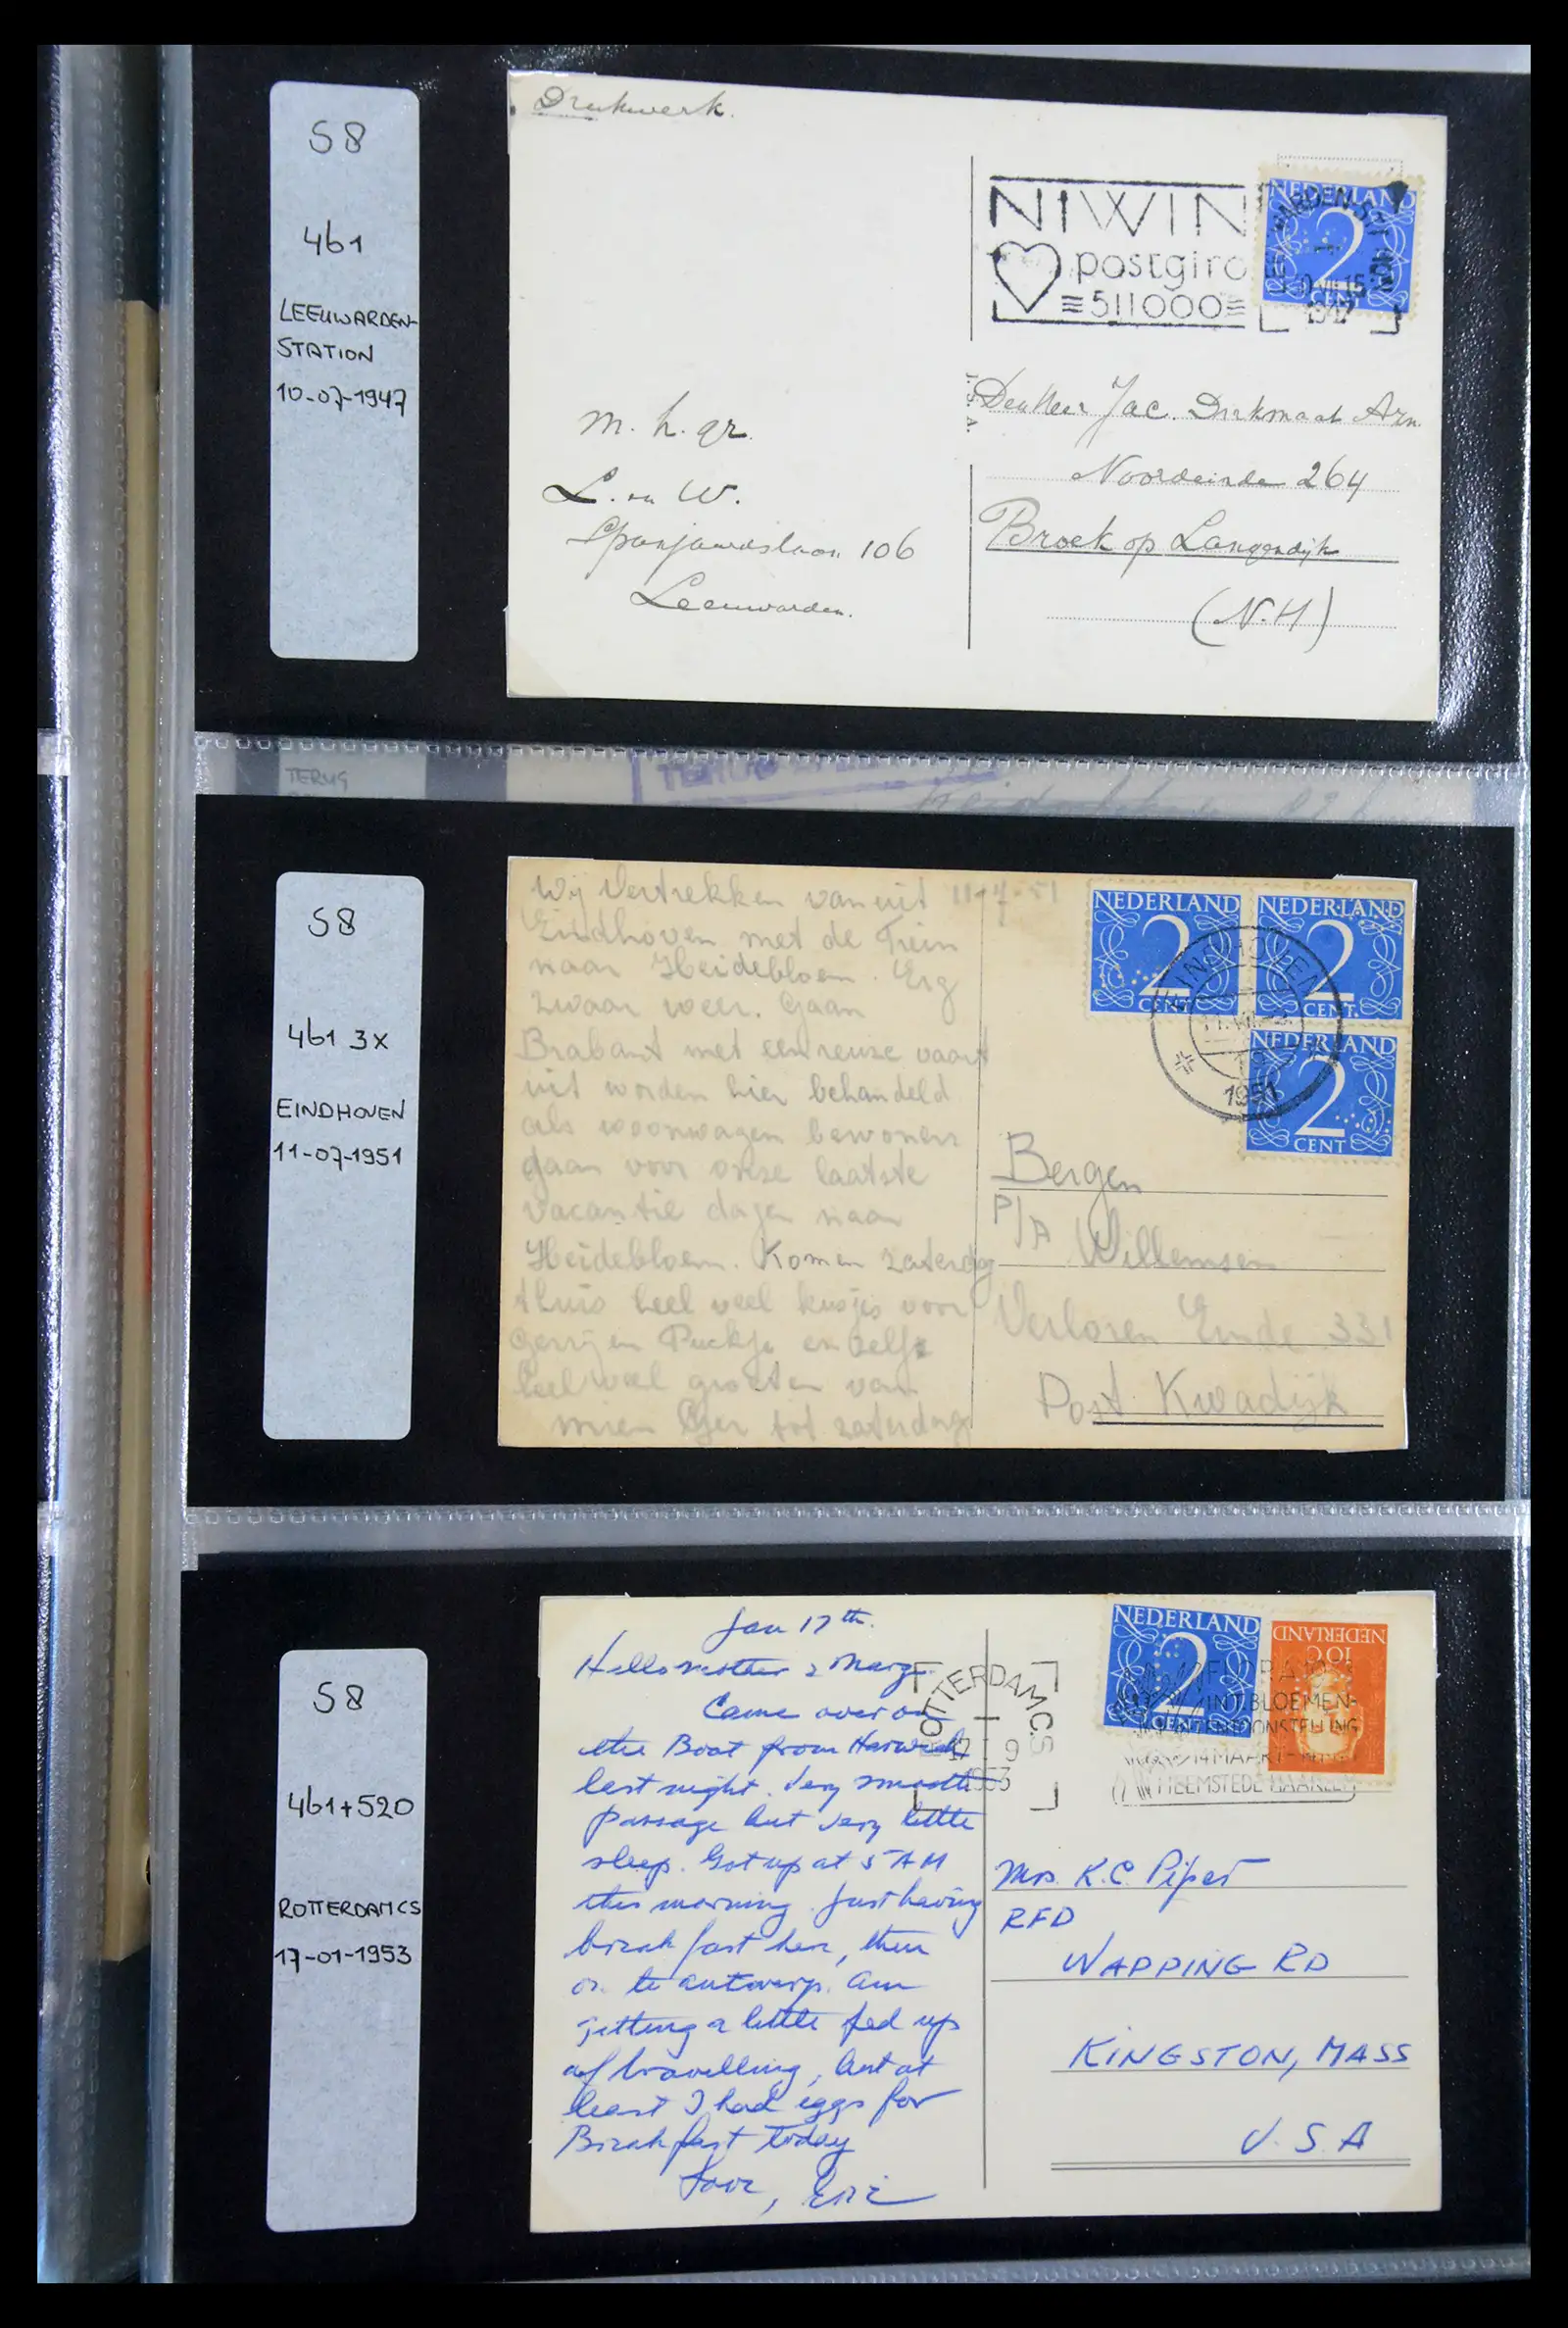 S8
461
LEEUWARDEN-
STATION
10-07-1947
Drukwerk.
NIWIN
postgiro
511000
NEDERLAND
2
CENT
1947
m. h. gr.
L. en W.
Spanjaardslaan 106
Leeuwarden.
Den Heer Jac. Dirkmaat Azn.
Noordeinde 264
Broek op Langendijk
(N.H)
TERUG
S8
461 3x
EINDHOVEN
11-07-1951
Wij Vertrekken vanuit 11-7-51
Eindhoven met de Trein
naar Heidebloem. Erg
zwaar weer. Gaan
Brabant met een reuze vaart
uit worden hier behandeld
als woonwagen bewoners
gaan voor onze laatste
vacantie dagen naar
Heidebloem. Komen zaterdag
thuis heel veel kusjes voor
Gerrij en Puckje en
heel veel groeten van
mien Ger tot zaterdag
NEDERLAND
2
CENT
NEDERLAND
2
CENT
NEDERLAND
2
CENT
EINDHOVEN
1951
Bergen
P/A Willemsen
Verloren Einde 331
Post Kwadijk
S8
461+520
ROTTERDAM CS
17-01-1953
Jan 17th.
Hello mother & Marge.
Came over on
the Boat from Harwich
last night. Very smooth
passage but very little
sleep. Got up at 5 AM
this morning. Just having
breakfast here, then
on to Antwerp. Am
getting a little fed up
of travelling, but at
least I had eggs for
Breakfast today
Love, Eric
ROTTERDAM C.S
17 I 9
1953
NEDERLAND
2
CENT
NEDERLAND
10C
FLORA
INT. BLOEMEN-
TENTOONSTELLING
14 MAART-
HEEMSTEDE HAARLEM
Mrs. K.C. Piper
RFD
WAPPING RD
KINGSTON, MASS
U.S.A